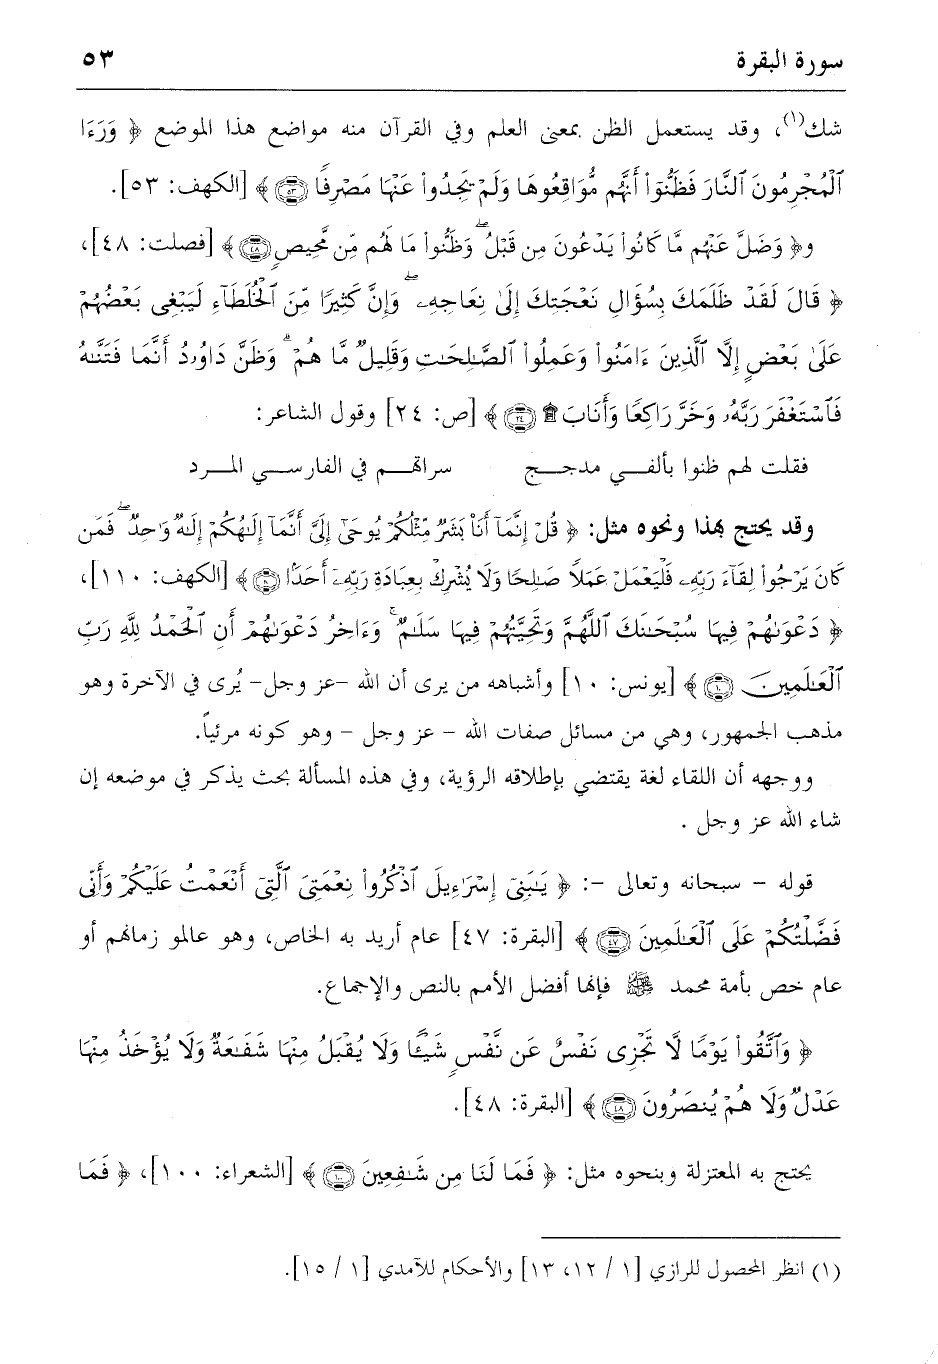 سورة البقرة ٥٣
شك(١)، وقد يستعمل الظن بمعنى العلم وفي القرآن منه مواضع هذا الموضع ﴿ وَرَءَا
ٱلْمُجْرِمُونَ ٱلنَّارَ فَظَنُّوٓا۟ أَنَّهُم مُّوَاقِعُوهَا وَلَمْ يَجِدُوا۟ عَنْهَا مَصْرِفًا ۝٥٣ ﴾ [الكهف: ٥٣].
و﴿ وَضَلَّ عَنْهُم مَّا كَانُوا۟ يَدْعُونَ مِن قَبْلُ ۖ وَظَنُّوا۟ مَا لَهُم مِّن مَّحِيصٍ ۝٤٨ ﴾ [فصلت: ٤٨]،
﴿ قَالَ لَقَدْ ظَلَمَكَ بِسُؤَالِ نَعْجَتِكَ إِلَىٰ نِعَاجِهِۦ ۖ وَإِنَّ كَثِيرًا مِّنَ ٱلْخُلَطَآءِ لَيَبْغِى بَعْضُهُمْ
عَلَىٰ بَعْضٍ إِلَّا ٱلَّذِينَ ءَامَنُوا۟ وَعَمِلُوا۟ ٱلصَّـٰلِحَـٰتِ وَقَلِيلٌ مَّا هُمْ ۗ وَظَنَّ دَاوُۥدُ أَنَّمَا فَتَنَّـٰهُ
فَٱسْتَغْفَرَ رَبَّهُۥ وَخَرَّ رَاكِعًا وَأَنَابَ ۩ ۝٢٤ ﴾ [ص: ٢٤] وقول الشاعر:
فقلت لهم ظنوا بألفـــي مدجـــج سراتهـــم في الفارســـي المـــرد
وقد يحتج بهذا ونحوه مثل: ﴿ قُلْ إِنَّمَآ أَنَا۠ بَشَرٌ مِّثْلُكُمْ يُوحَىٰٓ إِلَىَّ أَنَّمَآ إِلَـٰهُكُمْ إِلَـٰهٌ وَٰحِدٌ ۖ فَمَن
كَانَ يَرْجُوا۟ لِقَآءَ رَبِّهِۦ فَلْيَعْمَلْ عَمَلًا صَـٰلِحًا وَلَا يُشْرِكْ بِعِبَادَةِ رَبِّهِۦٓ أَحَدًۢا ۝١١٠ ﴾ [الكهف: ١١٠]،
﴿ دَعْوَىٰهُمْ فِيهَا سُبْحَـٰنَكَ ٱللَّهُمَّ وَتَحِيَّتُهُمْ فِيهَا سَلَـٰمٌ ۚ وَءَاخِرُ دَعْوَىٰهُمْ أَنِ ٱلْحَمْدُ لِلَّهِ رَبِّ
ٱلْعَـٰلَمِينَ ۝١٠ ﴾ [يونس: ١٠] وأشباهه من يرى أن الله -عز وجل- يُرى في الآخرة وهو
مذهب الجمهور، وهي من مسائل صفات الله - عز وجل - وهو كونه مرئياً.
ووجهه أن اللقاء لغة يقتضي بإطلاقه الرؤية، وفي هذه المسألة بحث يذكر في موضعه إن
شاء الله عز وجل .
قوله - سبحانه وتعالى -: ﴿ يَـٰبَنِىٓ إِسْرَٰٓءِيلَ ٱذْكُرُوا۟ نِعْمَتِىَ ٱلَّتِىٓ أَنْعَمْتُ عَلَيْكُمْ وَأَنِّى
فَضَّلْتُكُمْ عَلَى ٱلْعَـٰلَمِينَ ۝٤٧ ﴾ [البقرة: ٤٧] عام أريد به الخاص، وهو عالمو زمانهم أو
عام خص بأمة محمد ﷺ فإنها أفضل الأمم بالنص والإجماع.
﴿ وَٱتَّقُوا۟ يَوْمًا لَّا تَجْزِى نَفْسٌ عَن نَّفْسٍ شَيْـًٔا وَلَا يُقْبَلُ مِنْهَا شَفَـٰعَةٌ وَلَا يُؤْخَذُ مِنْهَا
عَدْلٌ وَلَا هُمْ يُنصَرُونَ ۝٤٨ ﴾ [البقرة: ٤٨].
يحتج به المعتزلة وبنحوه مثل: ﴿ فَمَا لَنَا مِن شَـٰفِعِينَ ۝١٠٠ ﴾ [الشعراء: ١٠٠]، ﴿ فَمَا
(١) انظر المحصول للرازي [١ / ١٢، ١٣] والأحكام للآمدي [١ / ١٥].